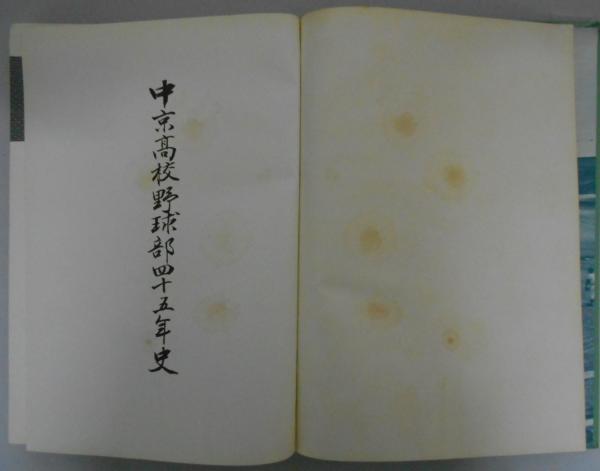 中京高校野球部四十五年史